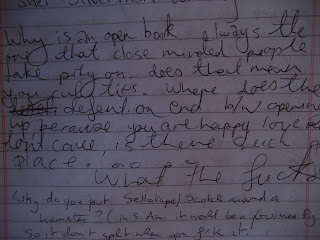 Shel Silverstein
Why is an open book always the
one that close minded people
take pity on. does that mean
you cut ties. where does the
defend. on end b/w opening
up because you are happy love or
dont care, is there such a
place. go
What The fuck
why do you put Sellotape/Scotch around a
hamster? (in S. Am it would be a
So it don't split when you fuck it!